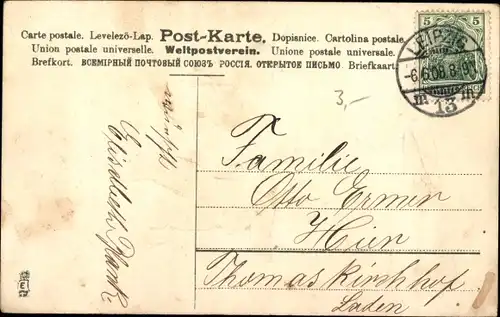 Carte postale. Levelező-Lap. Post-Karte. Dopisnice. Cartolina postale.
Union postale universelle. Weltpostverein. Unione postale universale.
Brefkort. ВСЕМІРНЫЙ ПОЧТОВЫЙ СОЮЗЪ РОССІЯ. ОТКРЫТОЕ ПИСЬМО. Briefkaart.
5 5
LEIPZIG
13
3,-
wünscht
Elisabeth
Familie
Otto Ermer
Hier
Thomaskirchhof
Laden